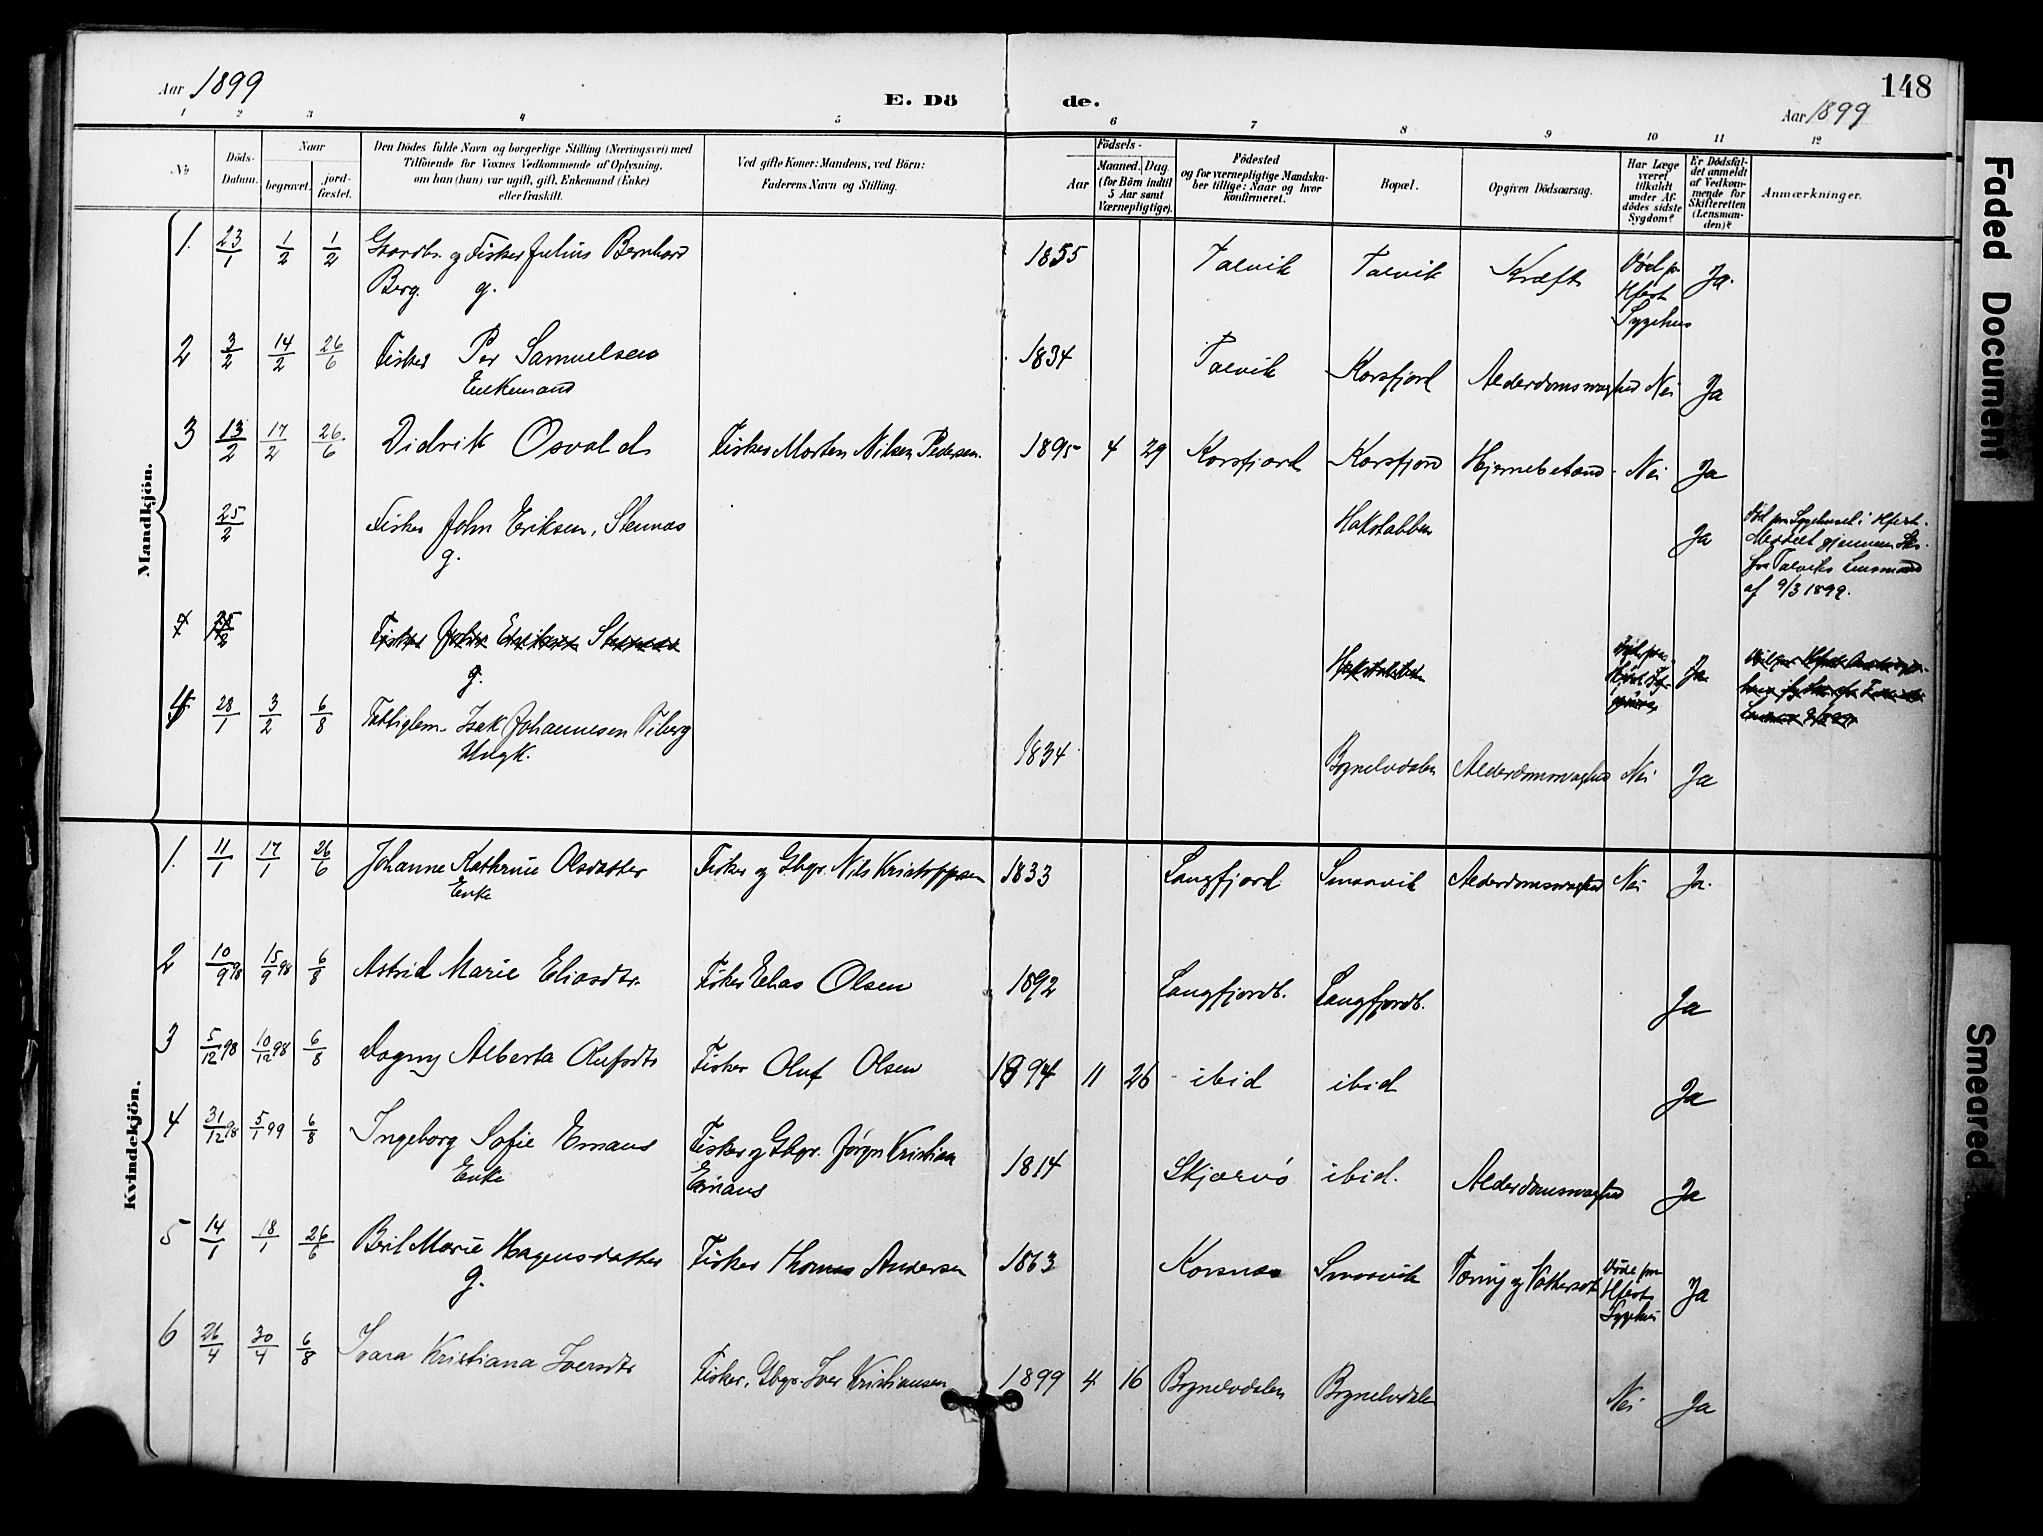 148
Aar 1899
E. Döde.
Aar 1899
1 2 3 4 5 6 7 8 9 10 11 12
No
Döds-Datum.
Naar
begravet.
jord-fæstet.
Den Dödes fulde Navn og borgerlige Stilling (Næringsvei) med
Tilföiende for Voxnes Vedkommende af Oplysning,
om han (hun) var ugift, gift, Enkemand (Enke)
eller fraskilt.
Ved gifte Koner: Mandens, ved Börn:
Faderens Navn og Stilling.
Födsels-
Aar
Maaned. Dag.
(for Börn indtil
5 Aar samt
Værnepligtige).
Födested
og for værnepligtige Mandska-
ber tillige: Naar og hvor
konfirmeret.
Bopæl.
Opgiven Dödsaarsag.
Har Læge
været
tilkaldt
under Af-
dödes sidste
Sygdom?
Er Dödsfal-
det anmeldt
af Vedkom-
mende for
Skifteretten
(Lensman-
den)?
Anmærkninger.
Mandkjön.
1. 23/1 1/2 1/2 Gaardbr. og Fisker Julius Bernhard 1855 Talvik Talvik Kræft Död på Ja.
Berg. g. Hfest
Sygehus
2 3/2 14/2 26/6 Fisker Per Samuelsen 1834 Talvik Korsfjord Alderdomssvaghed Nei Ja
Enkemand
3 13/2 17/2 26/6 Didrik Osvald Fisker Morten Nilsen Pedersen. 1895 4 29 Korsfjord Korsfjord Hjernebetænd. Nei Ja
25/2 Fisker John Eriksen, Stennæs Hakstabben Ja Död paa Sygehuset i Hfest.
g. Meddelt gjennem
for Talviks Lensmand
af 9/3 1899.
25/2 Fisker John Eriksen Stennæs Hakstabben Ja
g.
4 28/1 3/2 6/8 Fattiglem. Isak Johannesen Tiberg 1834 Bognelvdalen Alderdomssvaghed Nei Ja
Ungk.
Kvindekjön.
1. 11/1 17/1 26/6 Johanne Kathrine Olsdatter Fisker og Gbgr. Nils Kristoffersen 1833 Langfjord Smaavik Alderdomssvaghed Nei Ja.
Enke
2 10/9 98 15/9 98 6/8 Astrid Marie Eliasdtr. Fisker Elias Olsen 1892 Langfjordb. Langfjordb. Ja
3 5/12 98 10/12 98 6/8 Dagny Alberta Olufsdtr Fisker Oluf Olsen 1894 11 26 ibid ibid Ja
4 31/12 98 5/1 99 6/8 Ingeborg Sofie Emaus Fisker og Gbgr. Jørgn Kristian 1814 Skjærvö ibid. Alderdomssvaghed Ja
Enke Emaus
5 14/1 18/1 26/6 Beril Marie Magensdatter Fisker Thomas Andersen 1863 Korsnæs Smaavik Tæring og Vattersot Död paa Ja
g. Hfest
Sygehus
6 26/4 30/4 6/8 Ivara Kristiana Iversdtr Fisker, Gbgr. Iver Kristiansen 1899 4 16 Bognelvdalen Bognelvdalen Nei Ja
Faded Document
Smeared